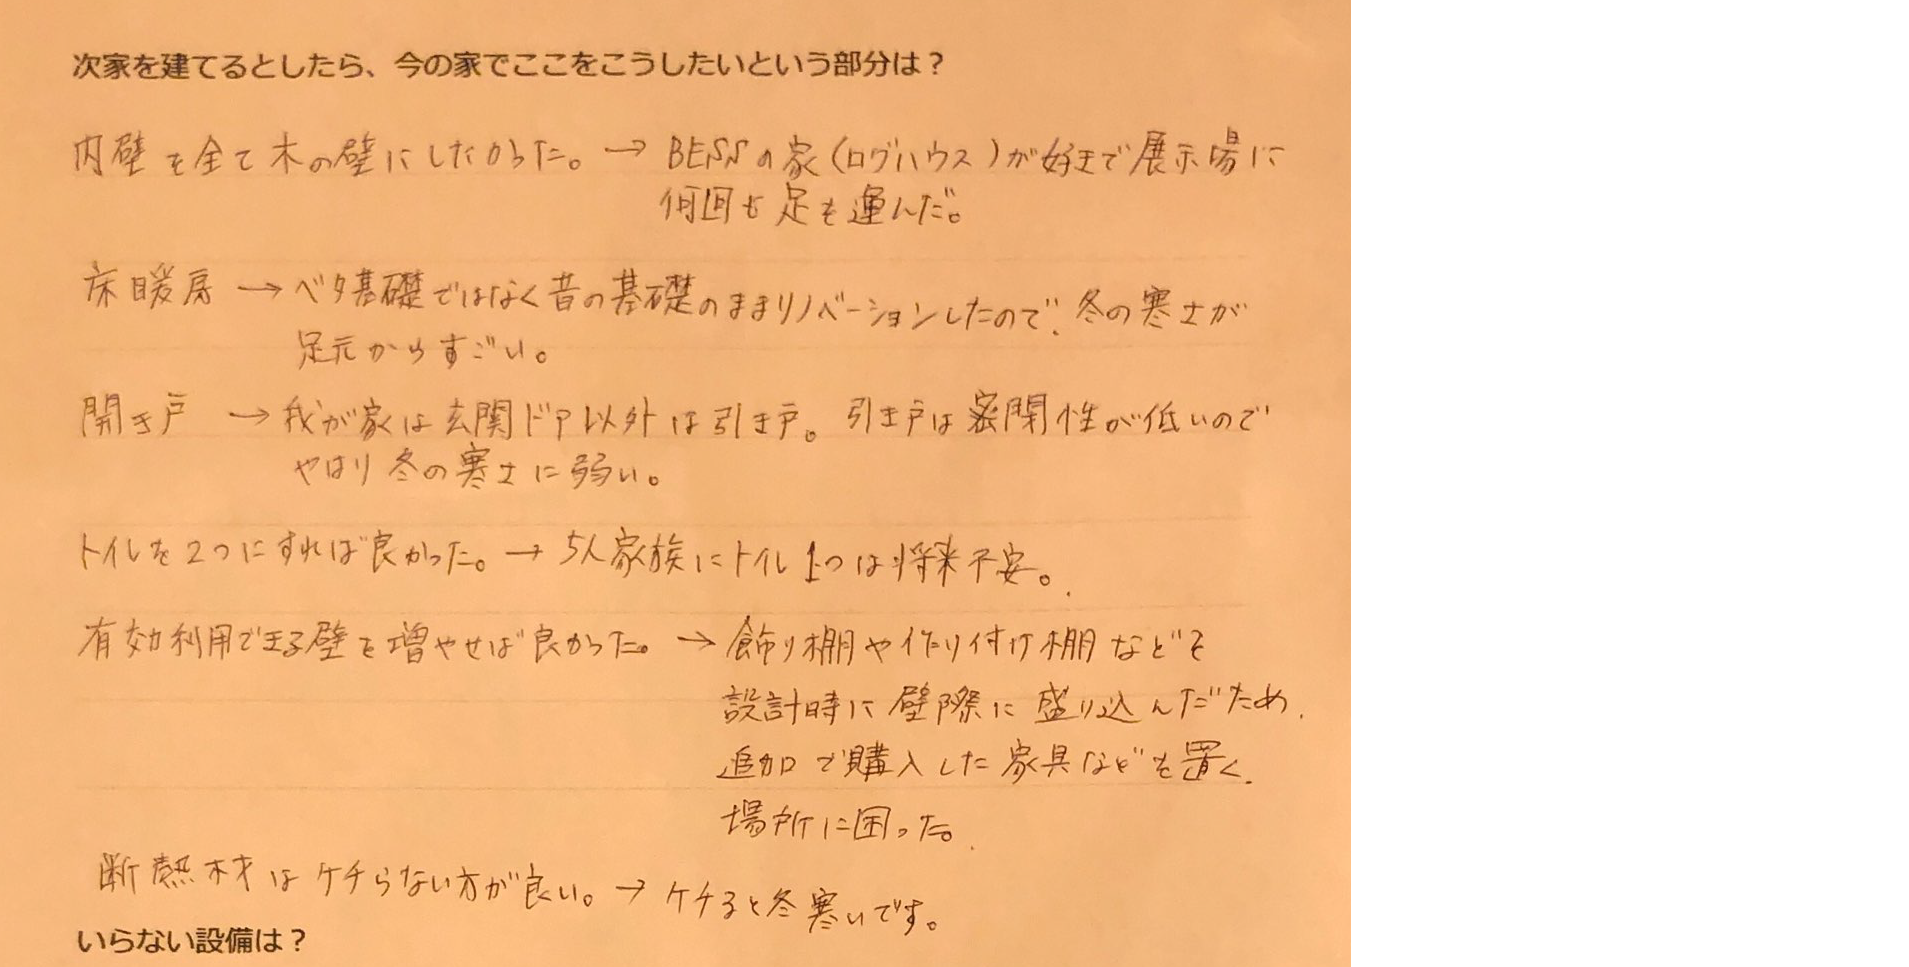 次家を建てるとしたら、今の家でここをこうしたいという部分は？
内壁を全て木の壁にしたかった。→ BESSの家(ログハウス)が好きで展示場に
何回も足を運んだ。
床暖房 → ベタ基礎ではなく昔の基礎のままリノベーションしたので、冬の寒さが
足元からすごい。
開き戸 → 我が家は玄関ドア以外は引き戸。引き戸は密閉性が低いので
やはり冬の寒さに弱い。
トイレを2つにすれば良かった。→ 5人家族にトイレ1つは将来不安。
有効利用できる壁を増やせば良かった。→ 飾り棚や作り付け棚などを
設計時に壁際に盛り込んだため、
追加で購入した家具などを置く
場所に困った。
断熱材はケチらない方が良い。→ ケチると冬寒いです。
いらない設備は？